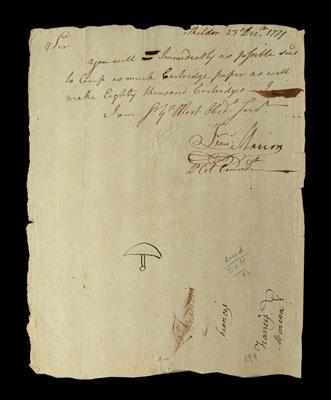 Sheldon 23d Decr. 1777
Sir
You will Immediately as possible send
to Camp as much Cartridge paper as will
make Eighty thousand Cartridges
I am Sr. Yr. Most Obdt. Servt.
Fran Marion
Lt Col Commdt
Francis
Francis
Marion